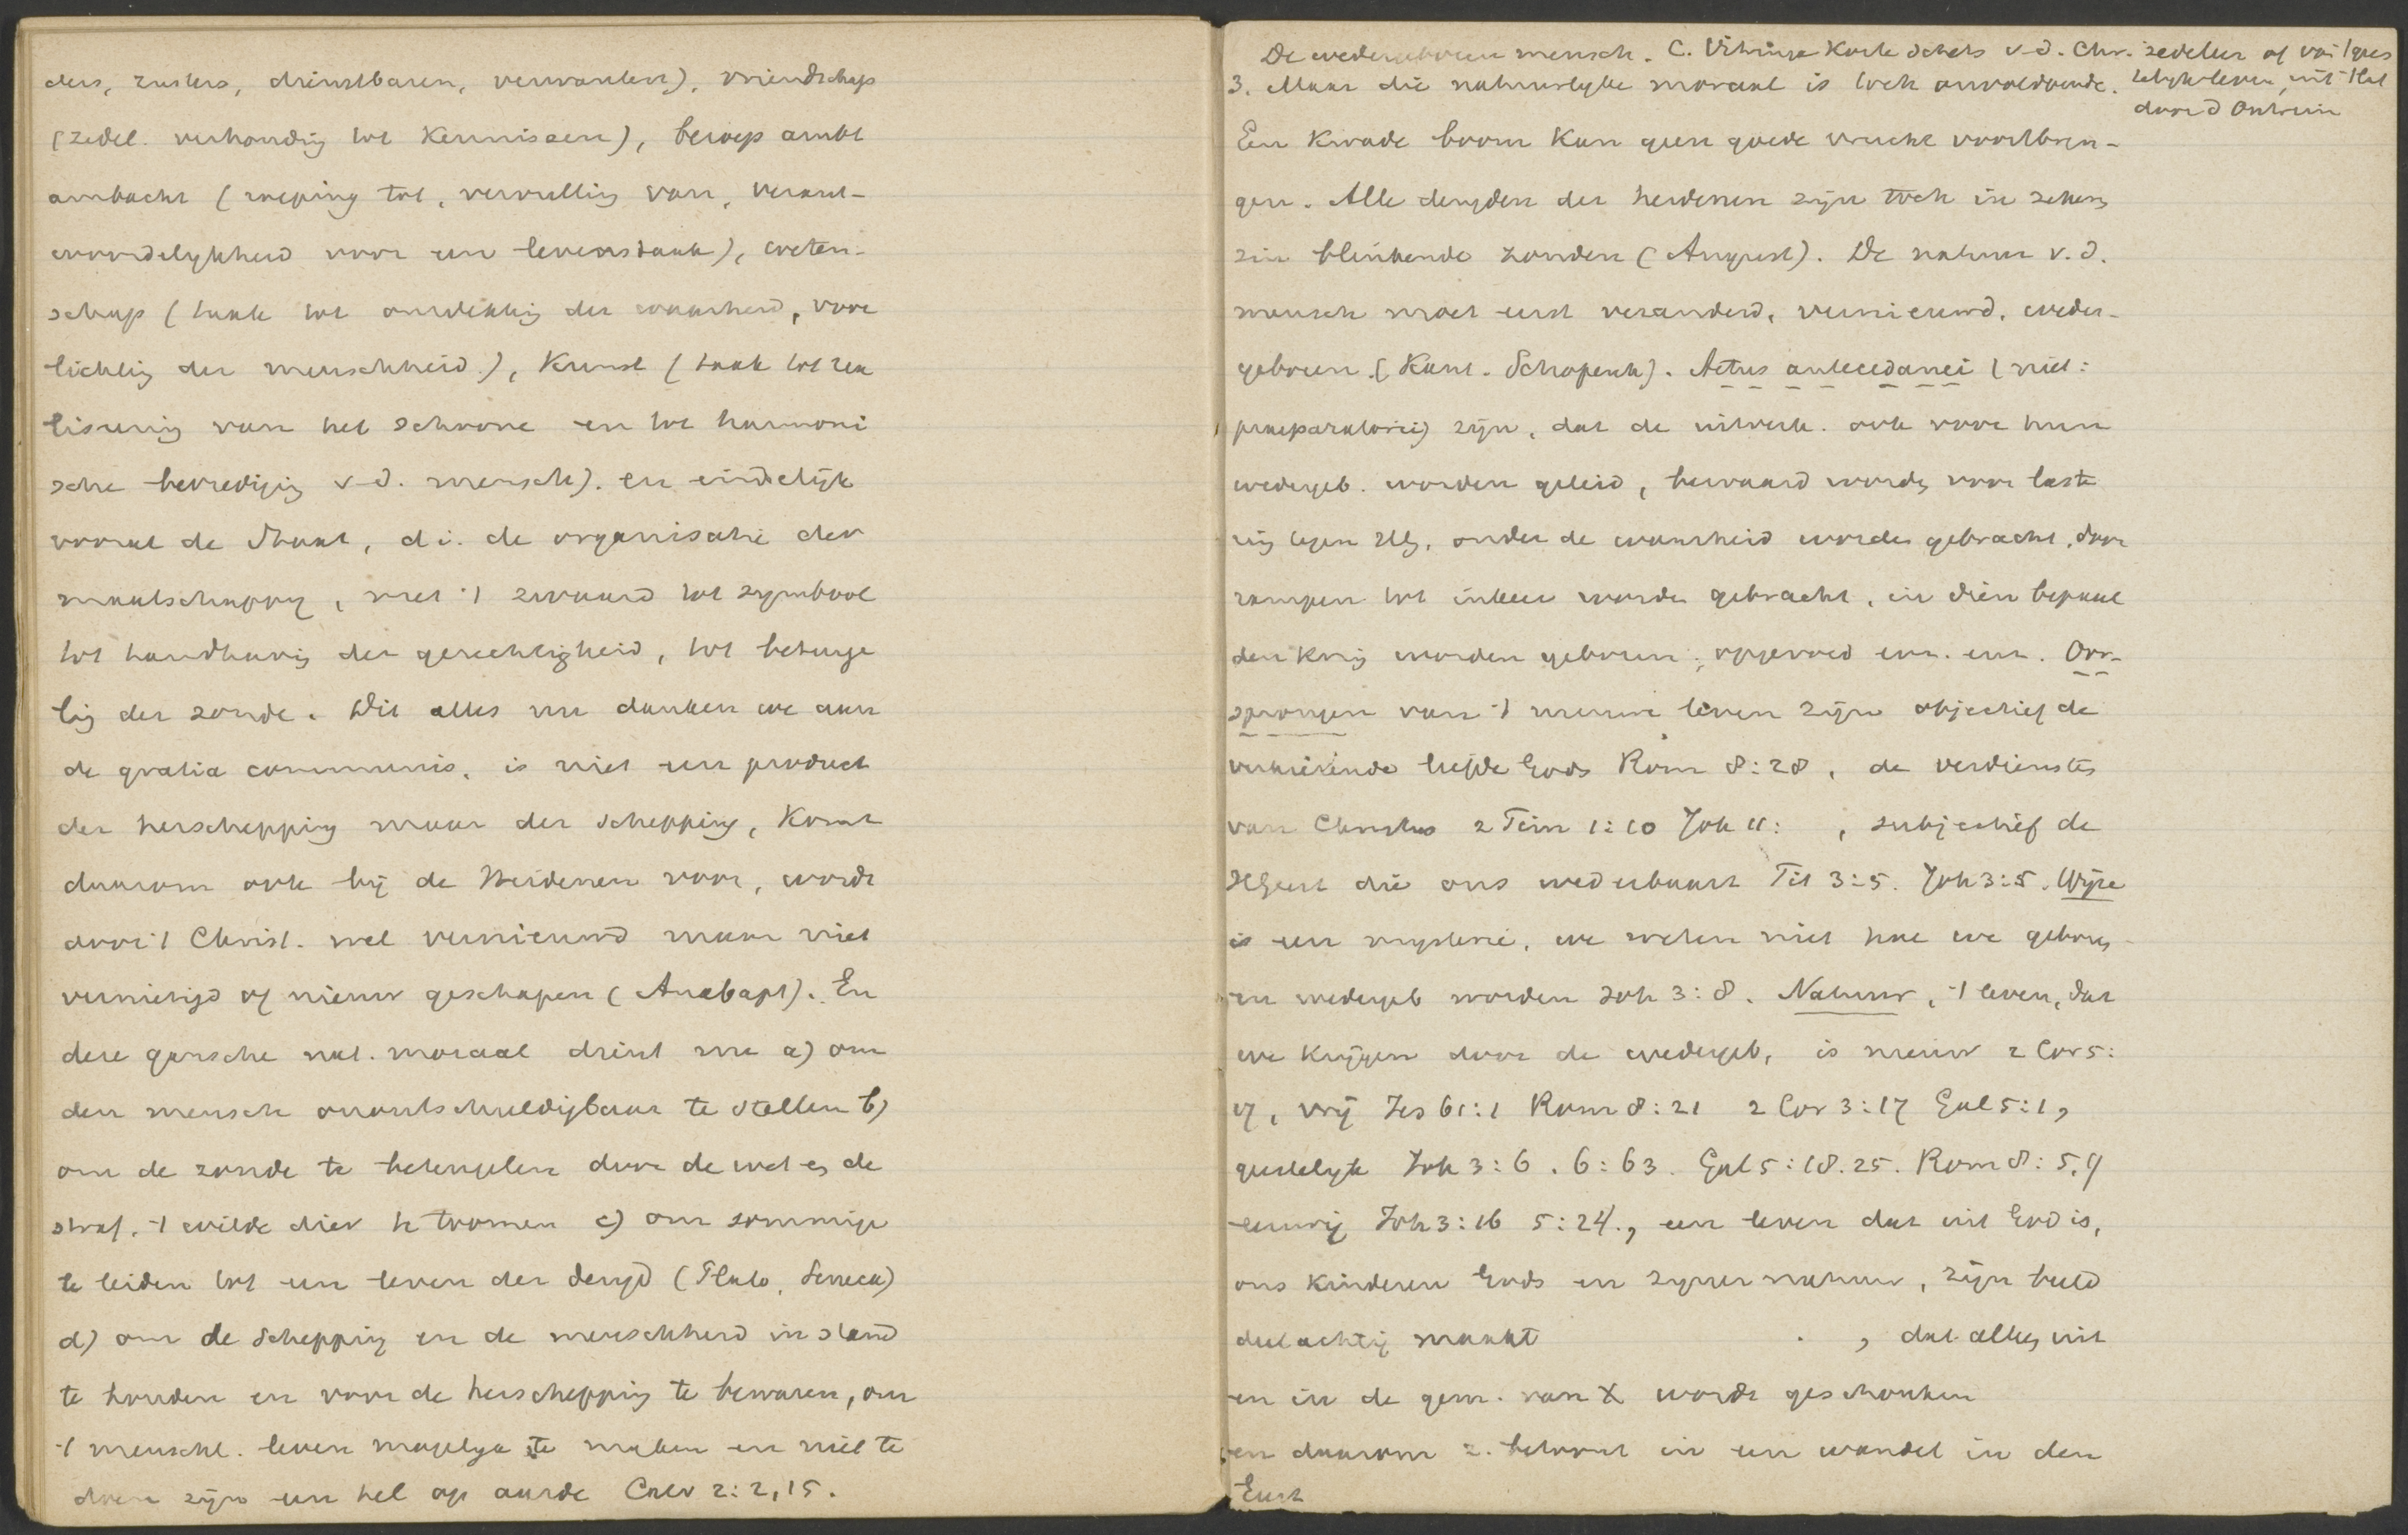 ders, zusters, dienstbaren, verwanten), vriendschap
(zedel. verhouding tot kennissen), beroep ambt
ambacht (roeping tot, vervulling van, verant-
woordelykheid voor een levenstaak), weten-
schap (taak tot ontdekking der waarheid, voor
lichting der menschheid), Kunst (taak tot rea
lisering van het schoone en tot harmoni
sche bevrediging v.d. mensch). en eindelijk
vooral de Staat, d.i. de organisatie der
maatschappy, met 't zwaard tot symbool
tot handhaving der gerechtigheid, tot beteuge
ling der zonde. Dit alles nu danken we aan
de gratia communis, is niet een product
der herschepping maar der schepping, komt
daarom ook bij de Heidenen voor, wordt
door 't Christ. wel vernieuwd maar niet
vernietigd of nieuw geschapen (Anabapt). En
deze gansche nat. moraal dient nu a) om
den mensch onontschuldigbaar te stellen b)
om de zonde te beteugelen door de wet en de
straf, 't wilde dier te toomen c) om sommige
te leiden tot een leven der deugd (Plato, Seneca)
d) om de schepping en de menschheid in stand
te houden en voor de herschepping te bewaren, om
't menschl. leven mogelyk te maken en niet te
doen zijn een hel op aarde Calv 2:2,15.
De wedergeboren mensch. C. Vitringa Korte schets v.d. Chr. zedeleer of van 't gees
telyk leven, uit 't Lat
door d'Outrein
3. Maar die natuurlyke moraal is toch onvoldoende.
Een kwade boom kan geen goede vrucht voortbren-
gen. Alle deugden der heidenen zijn toch in zekeren
zin blinkende zonden (August). De natuur v.d.
mensch moet eerst veranderd, vernieuwd, weder-
geboren (Kant. Schopenh). Actus antecedanei (niet:
praeparatorii) zijn, dat de uitverk. ook voor hun
wedergeb. worden geleid, bewaard worden voor laste
ring tegen HG, onder de waarheid worden gebracht, door
rampen tot inkeer worden gebracht, in dien bepaal
den kring worden geboren, opgevoed enz. enz. Oor-
sprongen van 't nieuwe leven zijn objectief de
verkiezende liefde Gods Rom 8:28, de verdiensten
van Christus 2 Tim 1:10 Joh 11: , subjectief de
HGeest die ons wederbaart Tit 3:5. Joh 3:5. Wijze
is een mysterie, we weten niet hoe we geboren
en wedergeb worden Joh 3:8. Natuur, 't leven, dat
we krijgen door de wedergeb, is nieuw 2 Cor 5:
17, vrij Jes 61:1 Rom 8:21 2 Cor 3:17 Gal 5:1,
geestelyk Joh 3:6. 6:63. Gal 5:18.25. Rom 8:5.9
eeuwig Joh 3:16 5:24., een leven dat uit God is,
ons kinderen Gods en zyner natuur, zijn beeld
deelachtig maakt , dat alles uit
en in de gem. van X wordt geschonken
en daarom z. betoont in een wandel in den
Geest